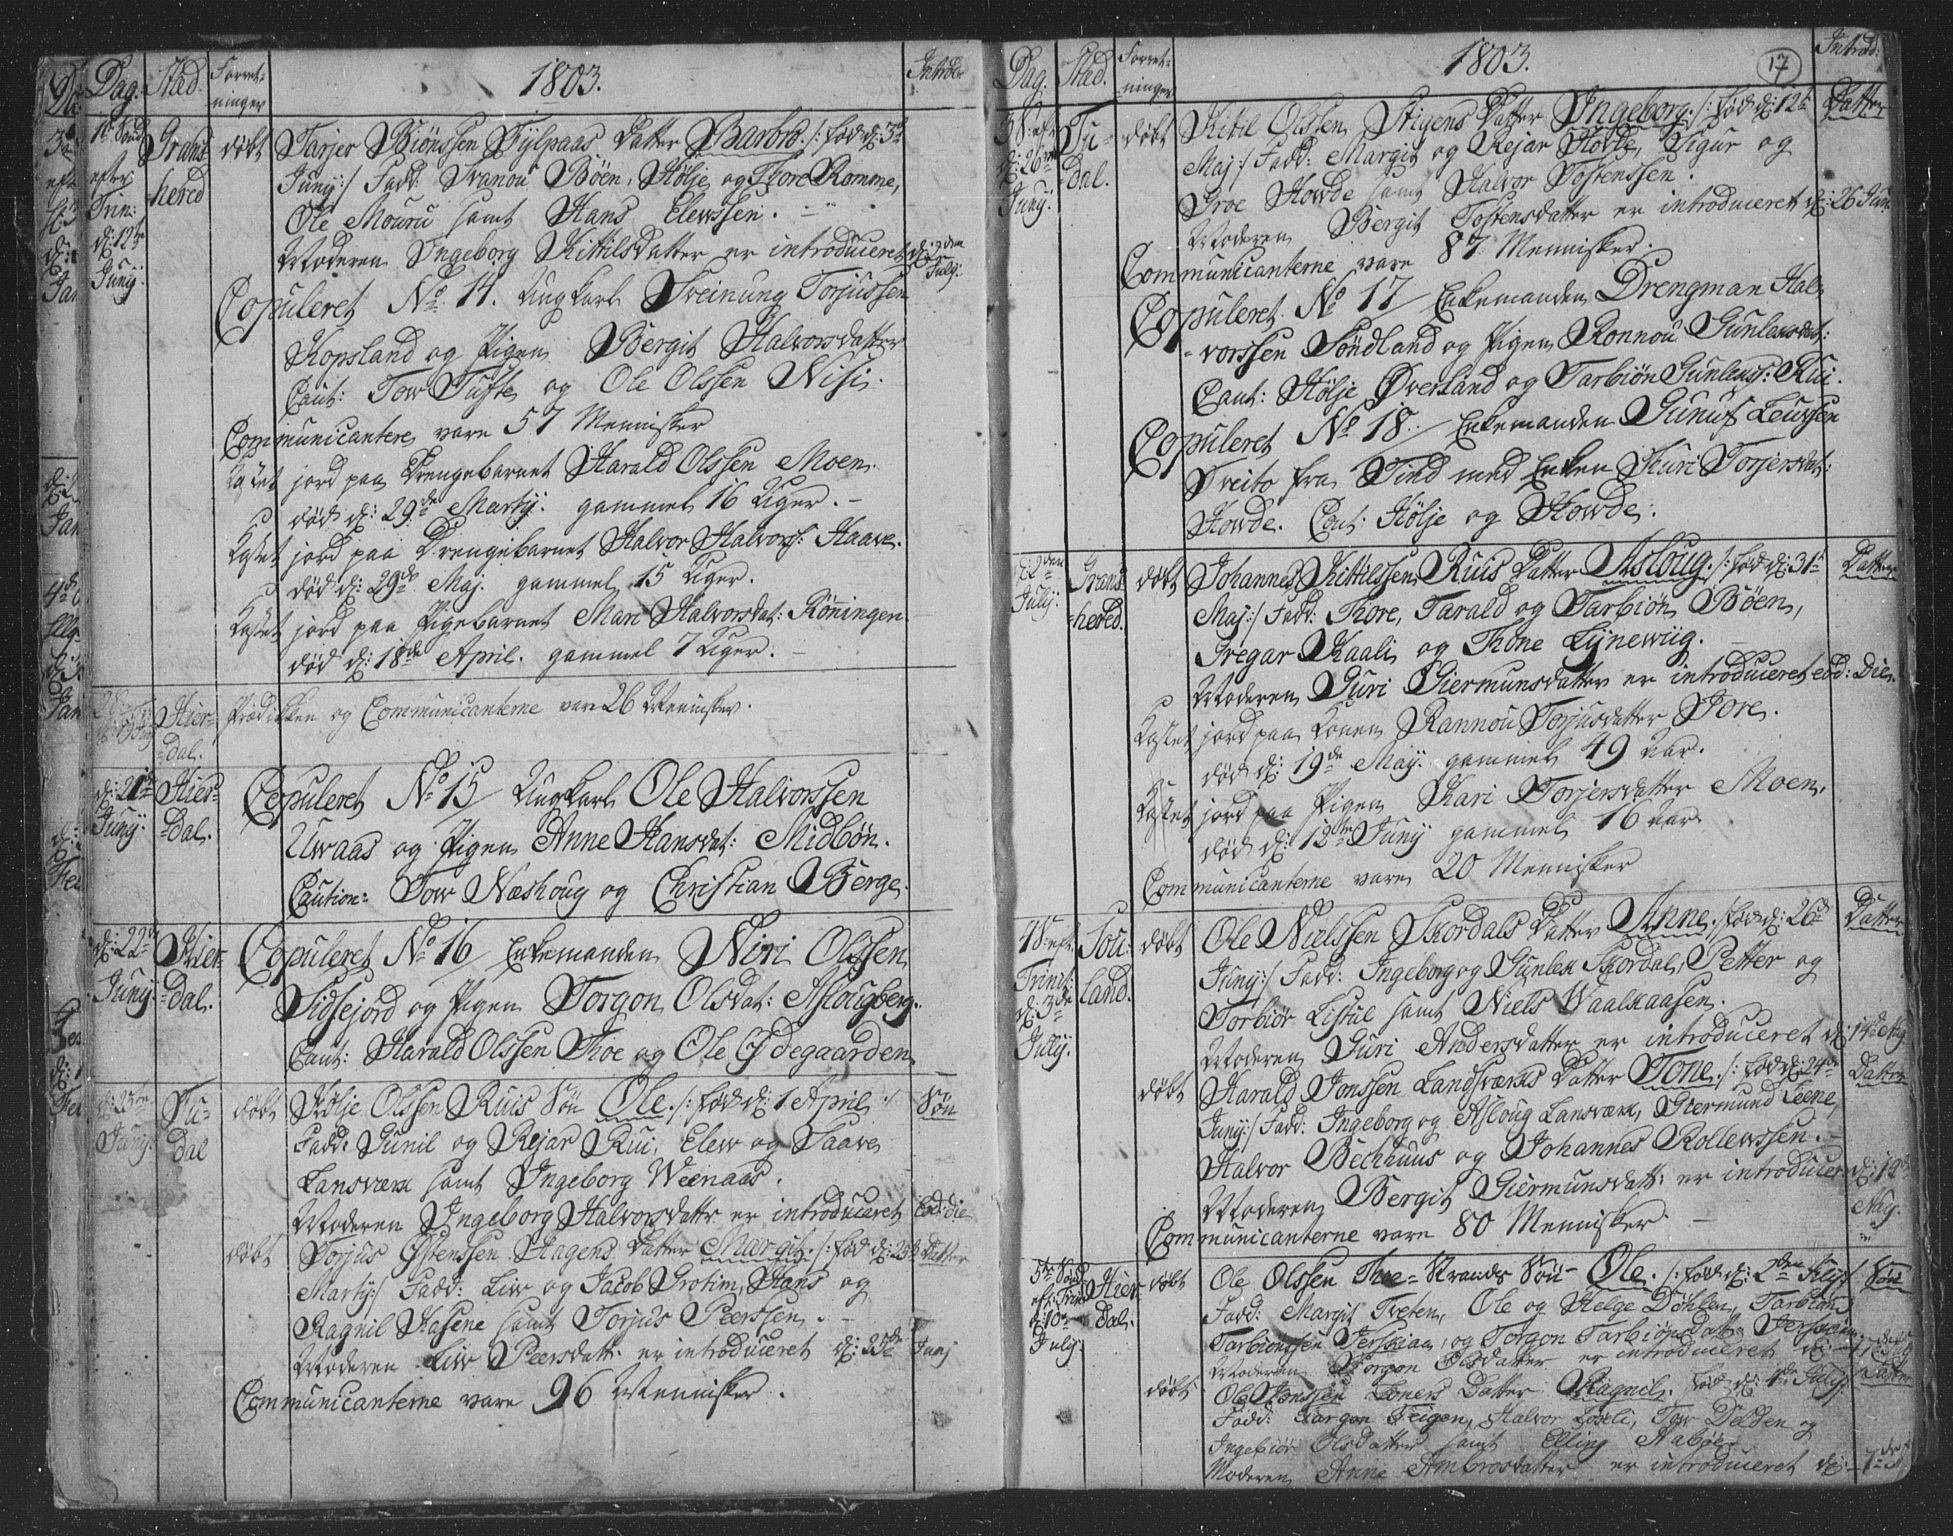 Dag. Stad. Forret-
ninger 1803. Introd:
1ste Sønd
efter
Trin:
d: 12te
Juny:
Grans
hered
døbt Tarjer Biønssen Fylpaas Datter Barbro /: fød d: 3de
Juny :/ Fadd: Svanou Bøen, Hølje og Thore Romme,
Ole Mouru samt Hans Elewssen.
Moderen Ingeborg Kittilsdatter er introduceret d: 2den July:
Copuleret No. 14. Ungkarl Sveinung Torjussen
Kopsland og Pigen Bergit Halvorsdatter
Caut: Tow Tufte og Ole Olssen Nisi.
Communicantere vare 57 Mennisker
Kastet jord paa Drengebarnet Harald Olssen Moen.
død d: 29de Martij. gammel 16 Uger. -
Kastet jord paa Drengebarnet Halvor Halvors: Haave.
død d: 29de Maj. gammel 15 Uger.
Kastet jord paa Pigebarnet Mari Halvorsdat: Røningen
død d: 18de April. gammel 7 Uger. -
Hier-
dal.
Prædikken og Communicanterne vare 26 Mennisker.
d: 21de
Juny:
Hier-
dal.
Copuleret No 15 / Ungkarl Ole Halvorssen
Uwaas og Pigen Anne Hansdat: Midbøn.
Caution: Tow Næshoug og Christian Berge.
d: 22de
Juny
Hier-
dal.
Copuleret No 16 / Enkemanden Niri Olssen
Sidsejord og Pigen Torgon Olsdat: Aslougberg.
Caut: Harald Olssen Thoe og Ole Ødegaarden
Juny.
Tu-
dal
døbt Hølje Olssen Ruis Søn Ole. /: fød d: 1 April :/ Søn
Fadd: Gunil og Rejar Rui, Elew og Saave
Lansværk samt Ingeborg Weenaas.
Moderen Ingeborg Halvorsdattr er introduceret Eod: die
døbt Torjus Østenssen Hagens Datter Margit. /: fød d: 23de Datter
Martij :/ Fadd: Liw og Jacob Grotim, Hans og
Ragnil Hasene samt Torjus Peerssen. -
Moderen Liw Peersdatt: er introduceret d: 25de Junj
Communicanterne vare 96 Mennisker.
Dag. Stad. Forret-
ninger 1803. 17 Introd:
3 S: eftr
d: 26de
Juny:
Tu-
dal.
døbt Kitil Olssen Stigens Datter Ingeborg: /: fød d: 12te Datter
Maj :/ Fadd: Margit og Rejar Howde, Sigur og
Groe Howde samt Halvor Tostenssen.
Moderen Bergit Tostensdatter er introduceret d: 26 Jun
Communicanterne vare 87 Mennisker.
Copuleret No 17 / Enkemanden Drengman Hal
-vorssen Søndland og Pigen Ronnou Gunlewsdat:
Caut: Hølje Øverland og Tarbiøn Gunleus: Rui.
Copuleret No 18. / Enkemanden Gunuf Leurssen
Sveito fra Tind med Enken Thuri Torjersdat:
Howde. Caut: Hølje og Howde.
d: 2den
July:
Grans
-hered.
døbt Johannes Kittilssen Ruis Datter Asloug. /: fød d: 31te Datter
Maj :/ Fadd: Thore, Tarald og Tarbiøn Bøen,
Gregar Kaali og Thone Lynewiig. -
Moderen Guri Giermunsdatter er introduceret eod: Die.
Kastet jord paa Konen Rannou Torjusdatter Jore.
død d: 19de May: gammel 49 aar.
Kastet jord paa Pigen Kari Torjersdatter Moen.
død d: 12te Juny gammel 16 aar
Communicanterne vare 20 Mennisker
4 S. eft.
Trinit:
d: 3de
July.
Sou-
land.
døbt Ole Nielssen Skordals Datter Anne. /: fød d: 26de Datter
Juny :/ Fadd: Ingeborg og Gunlek Skordal, Petter og
Torbiør Listul samt Niels Waalkaasen.
Moderen Guri Andersdatter er introduceret d: 14de Aug
døbt Harald Jonssen Landsværks Datter Tone. /: fød d: 24de Datter
Juny :/ Fadd: Ingeborg og Asloug Lansværk, Giermund Leene,
Halvor Bechhuus og Johannes Rollewssen. -
Moderen Bergit Giermunsdatt: er introduceret d: 14de
Aug.
Communicanterne vare 80 Mennisker. -
5te Sønd
eft: Trin
d: 10de
July.
Hier
dal.
døbt Ole Olssen Thoe-Strands Søn - Ole. /: fød d: 2den July :/ Søn
Fadd: Margit Tveten, Ole og Helge Døhlen, Tarbiøn
Tarbiønssen Jerskaas, og Torgon Tarbiønsdatt:
Moderen Torgon Olsdatter er introduceret d:
døbt Ole Jonssen Loners Datter Ragnil. fød d: 4de July: Datter
Fadd: Targon Teigen, Halvor Løseli, Tow Delden og
Ingebiør Olsdatter samt Elling Aabøe
Moderen Anne Ambrosdatter er introduceret d: 7de